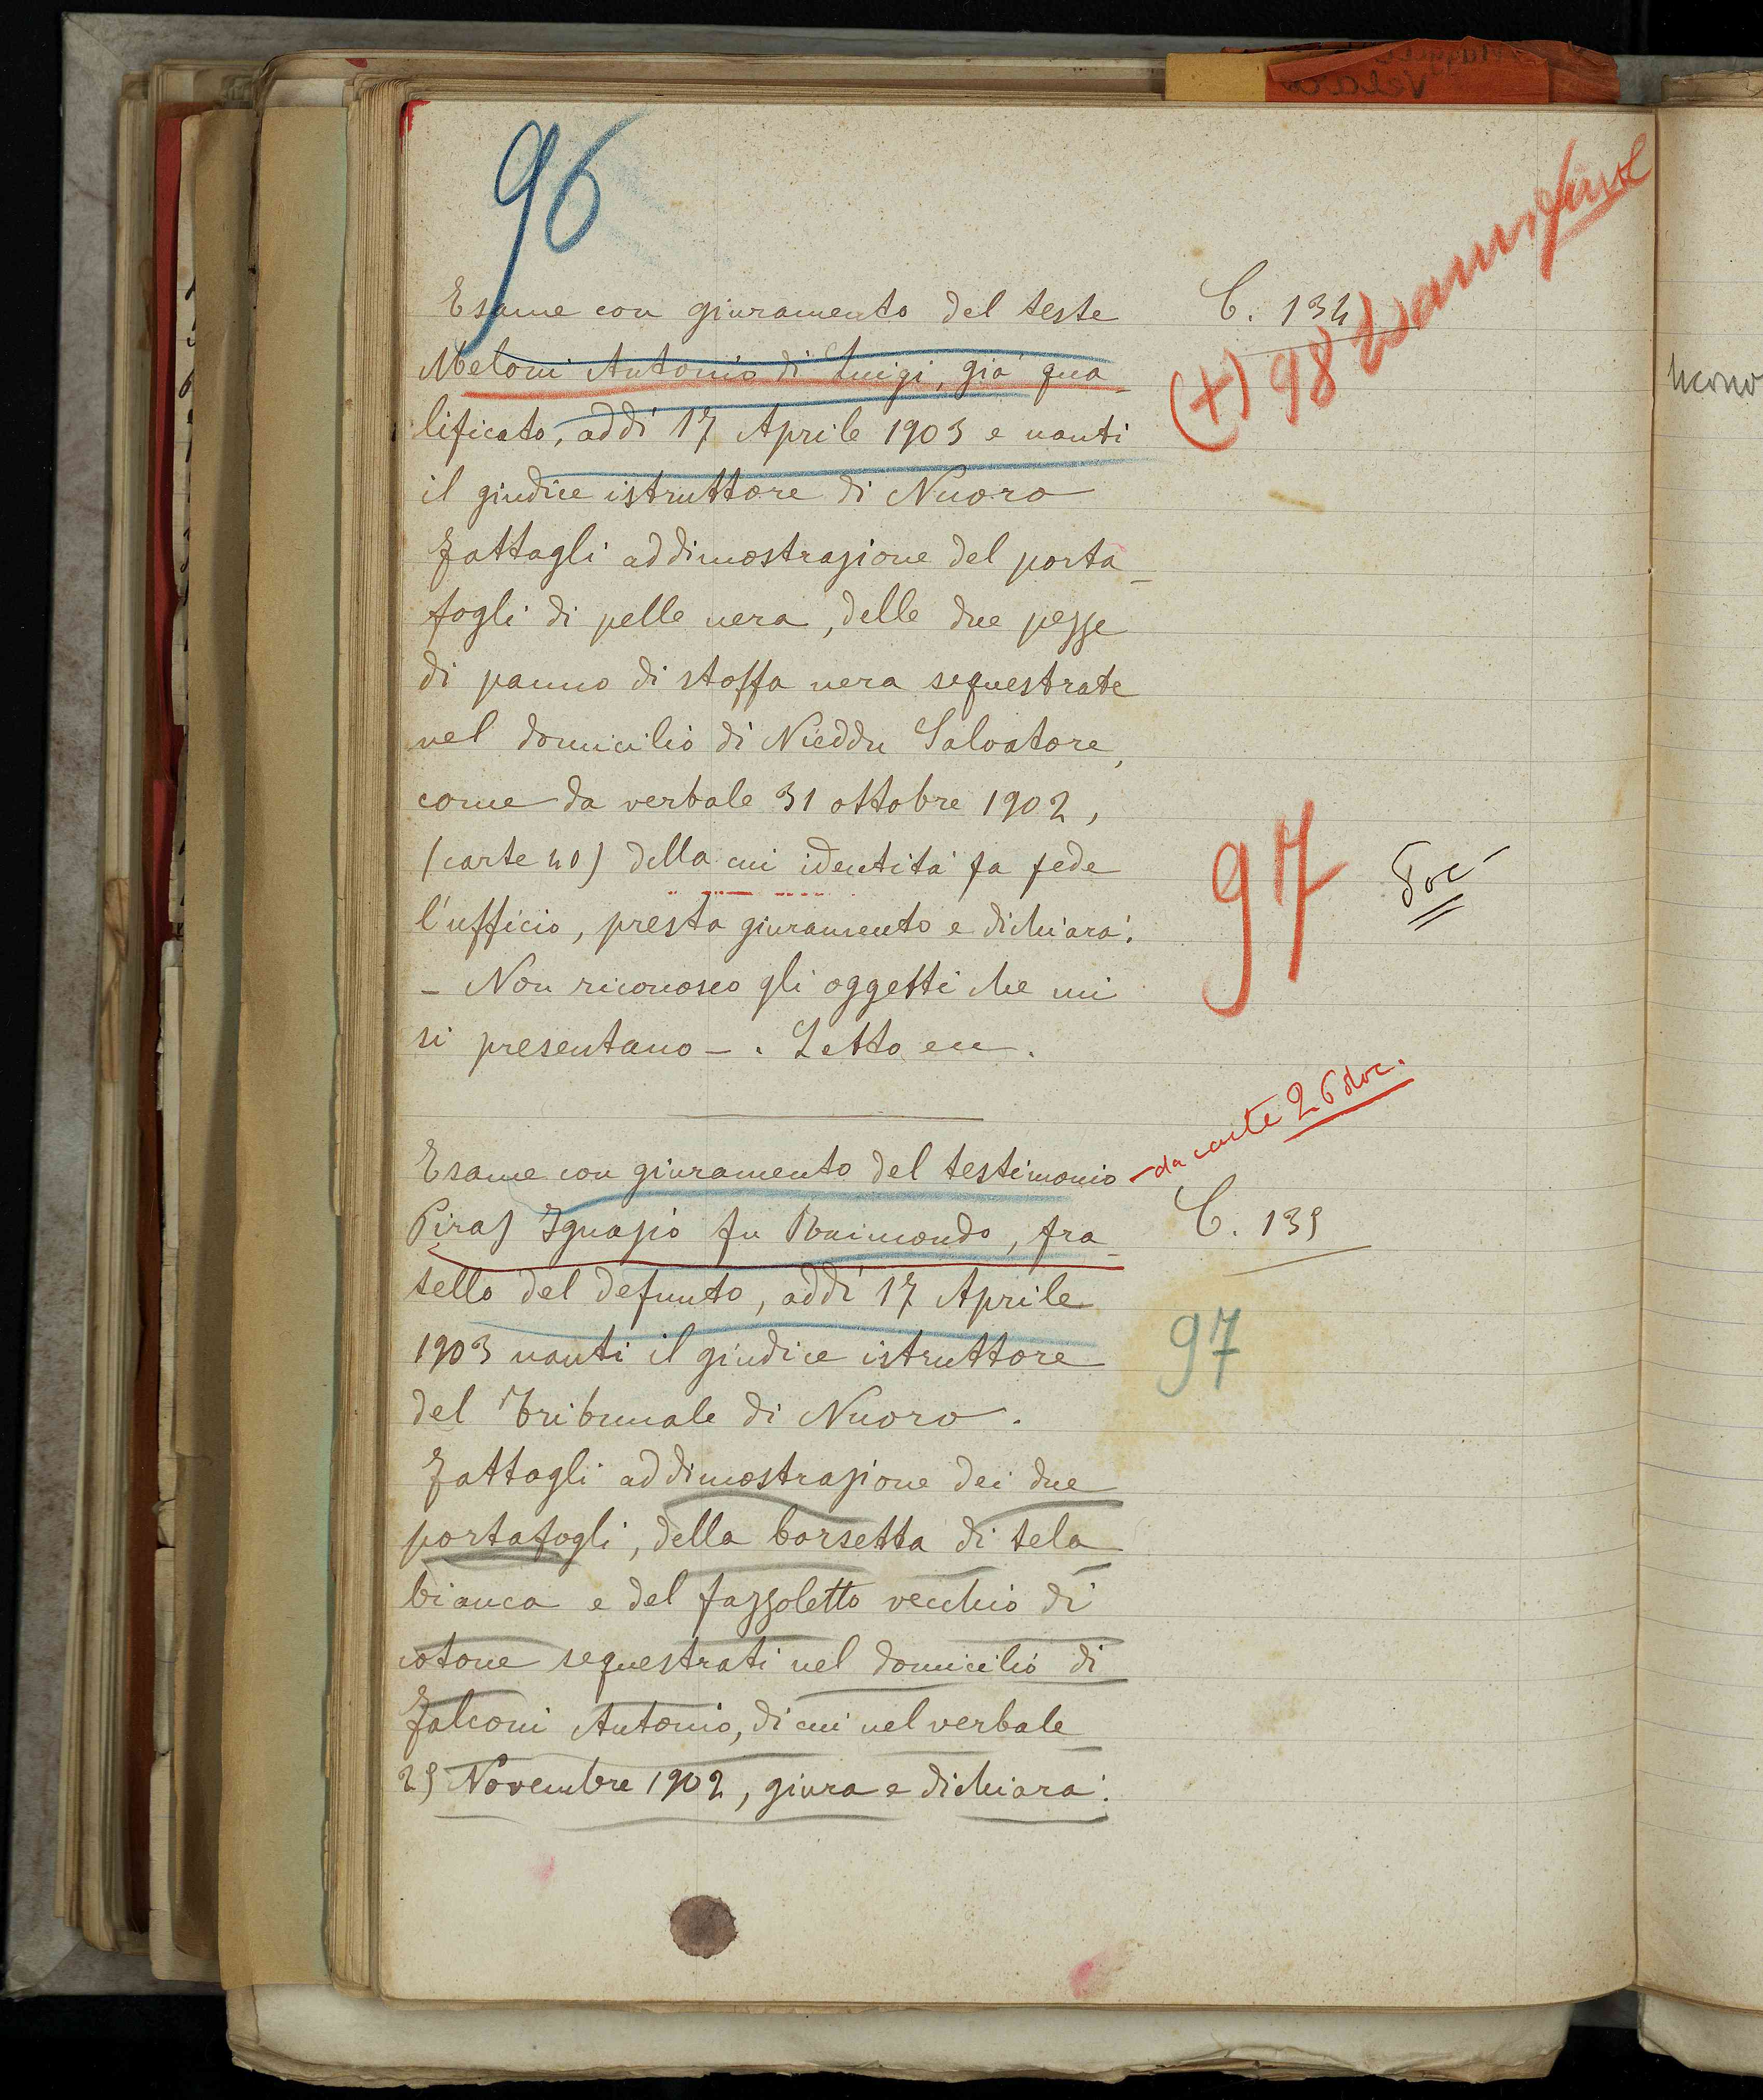 96
Esame con giuramento del teste
C. 134
Meloni Antonio di Luigi, già qua-
(+) 98
lificato, addì 17 Aprile 1903 e nanti
il giudice istruttore di Nuoro
Fattagli addimostrazione del porta-
fogli di pelle nera, delle due pezze
di panno di stoffa nera sequestrate
nel domicilio di Nieddu Salvatore,
come da verbale 31 ottobre 1902,
(carte 40) della cui identità fa fede
97
l'ufficio, presta giuramento e dichiara:
- Non riconosco gli oggetti che mi
si presentano -. Letto ecc.
da carte 26 doc.
Esame con giuramento del testimonio
Piras Ignazio fu Raimondo, fra-
C. 135
tello del defunto, addì 17 Aprile
1903 nanti il giudice istruttore
97
del Tribunale di Nuoro.
Fattagli addimostrazione dei due
portafogli, della borsetta di tela
bianca e del fazzoletto vecchio di
cotone sequestrati nel domicilio di
Falconi Antonio, di cui nel verbale
25 Novembre 1902, giura e dichiara: